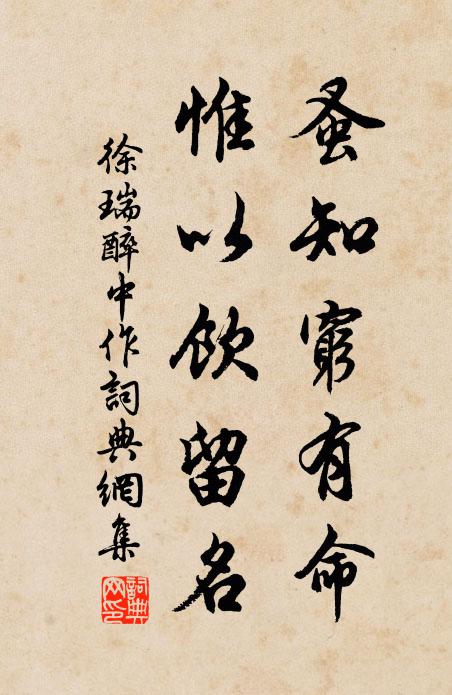 蚤知窮有命
惟以飲留名
徐瑞醉中作詞典網集
詞典網印